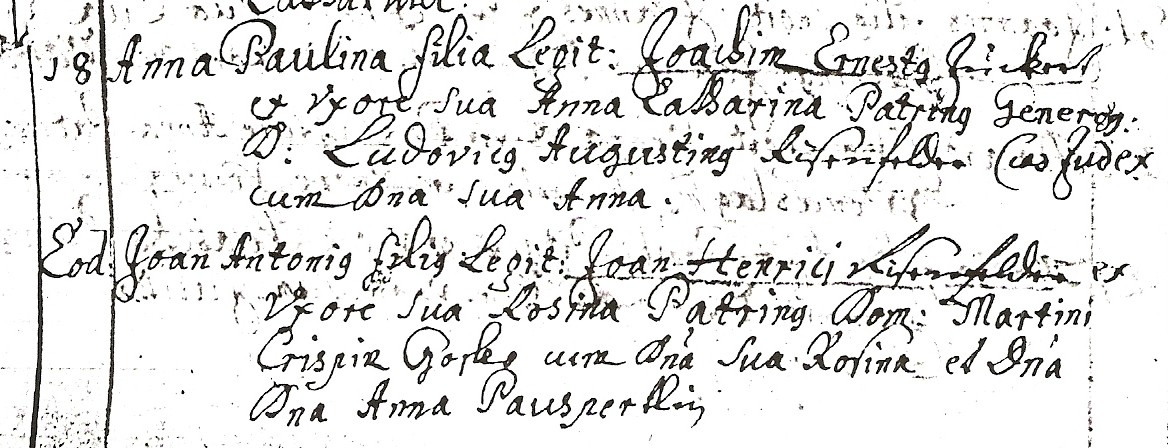 Catharina.
18 Anna Paulina filia Legit: Joachim Ernestq Zückert
ex Vxore sua Anna Catharina Patrinq Generoq:
D: Ludovicq Augustinq Risenfelder Cæs Judex
cum Dna sua Anna.
Eod: Joan Antoniq filiq Legit: Joan Henrici Risenfelder ex
Vxore sua Rosina Patrinq Dom: Martini
Crispin cum Dna sua Rosina et Dna
Dna Anna